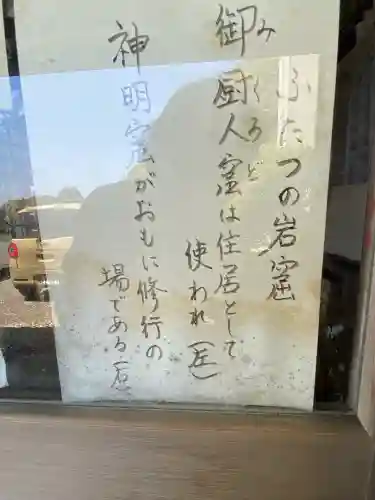 ふたつの岩窟
御厨人窟は住居として
みくろど
使われ(左)
神明窟がおもに修行の
場である(右)